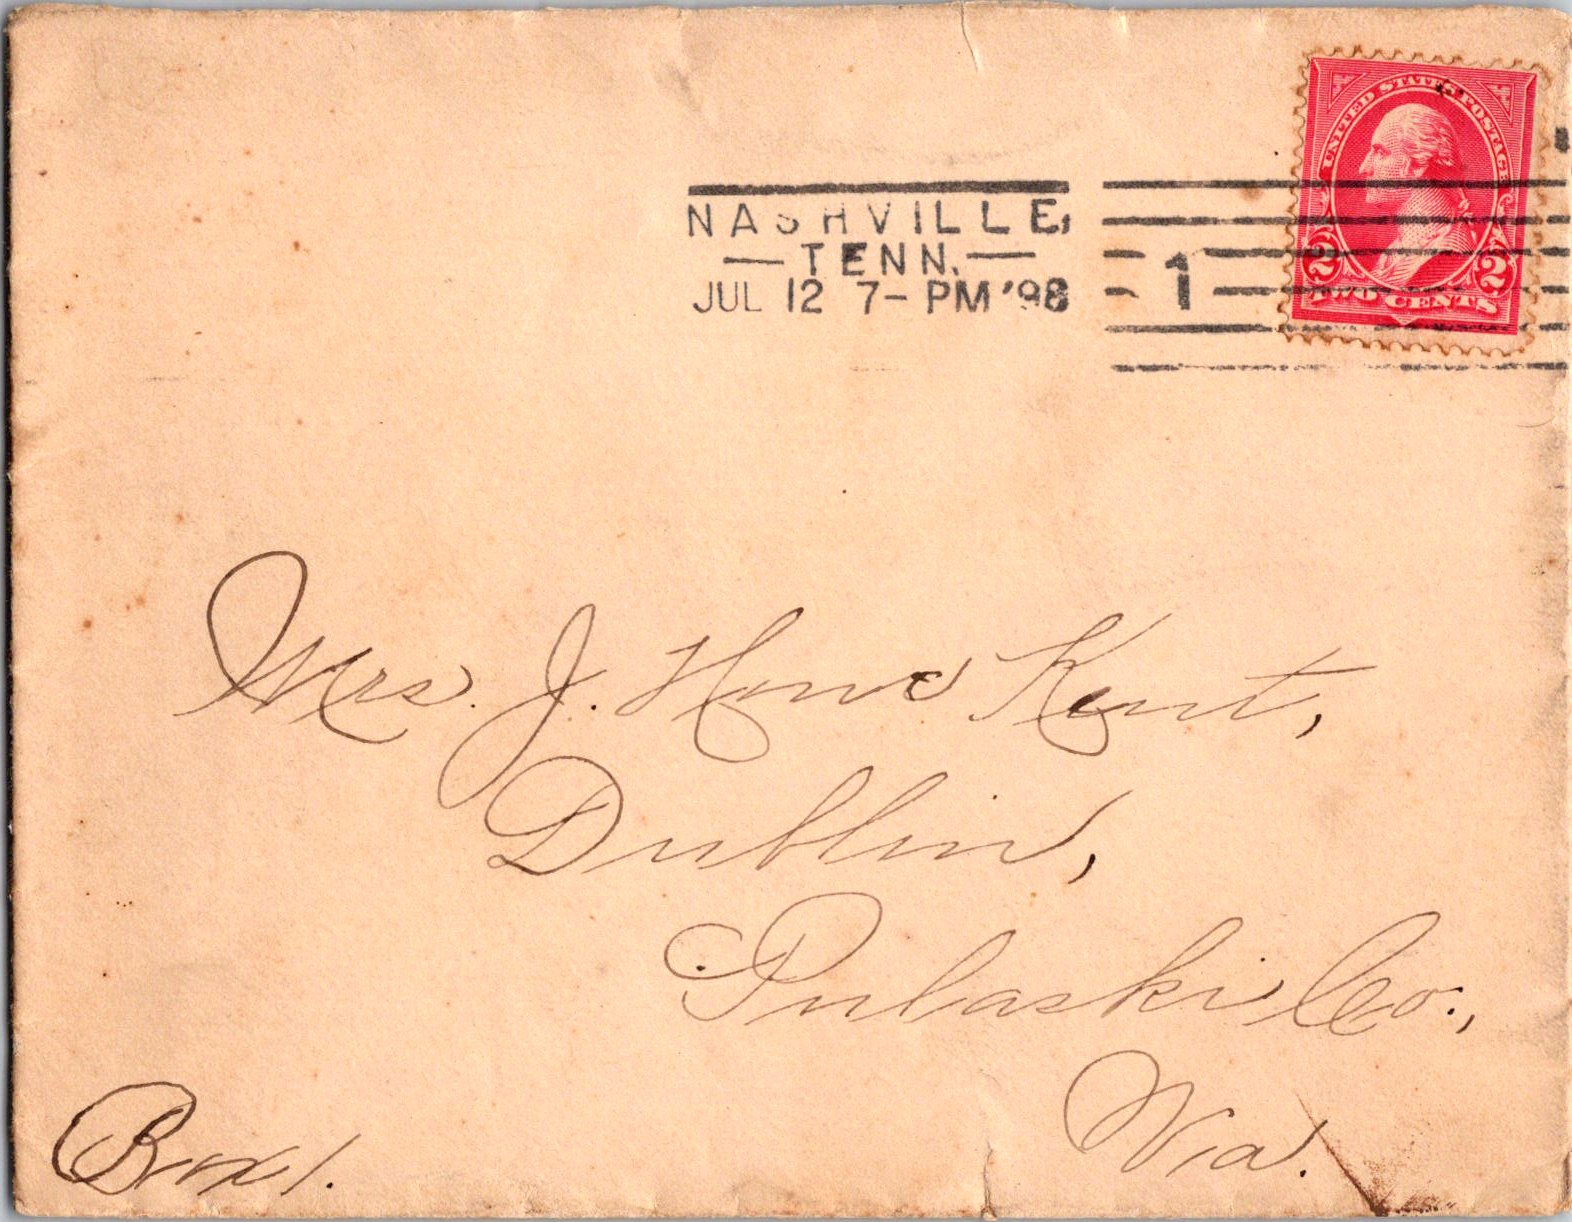 UNITED STATES POSTAGE
2 2
TWO CENTS
NASHVILLE,
TENN.
JUL 12 7- PM '98
1
Mrs. J. Howe Kent,
Dublin,
Pulaski Co.,
Via.
Box 1.